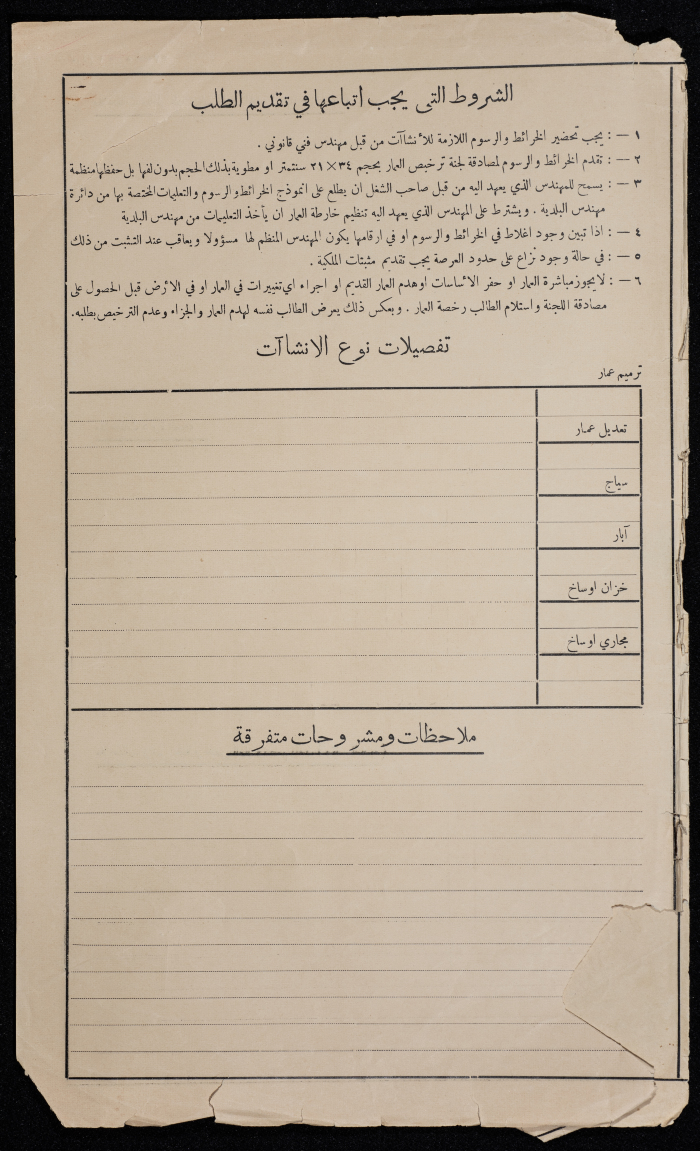 الشروط التي يجب اتباعها في تقديم الطلب
١ — : يجب تحضير الخرائط والرسوم اللازمة للأنشاآت من قبل مهندس فني قانوني .
٢ — : تقدم الخرائط والرسوم لمصادقة لجنة ترخيص العمار بحجم ٣٤×٢١ سنتمتر او مطوية بذلك الحجم بدون لفها بل حفظها منظمة
٣ — : يسمح للمهندس الذي يعهد اليه من قبل صاحب الشغل ان يطلع على انموذج الخرائط والرسوم والتعليمات المختصة بها من دائرة
مهندس البلدية . ويشترط على المهندس الذي يعهد اليه تنظيم خارطة العمار ان يأخذ التعليمات من مهندس البلدية
٤ — : اذا تبين وجود اغلاط في الخرائط والرسوم او في ارقامها يكون المهندس المنظم لها مسؤولا ويعاقب عند التثبت من ذلك
٥ — : في حالة وجود نزاع على حدود العرصة يجب تقديم مثبتات الملكية .
٦ — : لايجوز مباشرة العمار او حفر الاساسات او هدم العمار القديم او اجراء اي تغييرات في العمار او في الارض قبل الحصول على
مصادقة اللجنة واستلام الطالب رخصة العمار . وبعكس ذلك يعرض الطالب نفسه لهدم العمار والجزاء وعدم الترخيص بطلبه.
تفصيلات نوع الانشاآت
ترميم عمار
تعديل عمار
سياج
آبار
خزان اوساخ
مجاري اوساخ
ملاحظات ومشروحات متفرقة